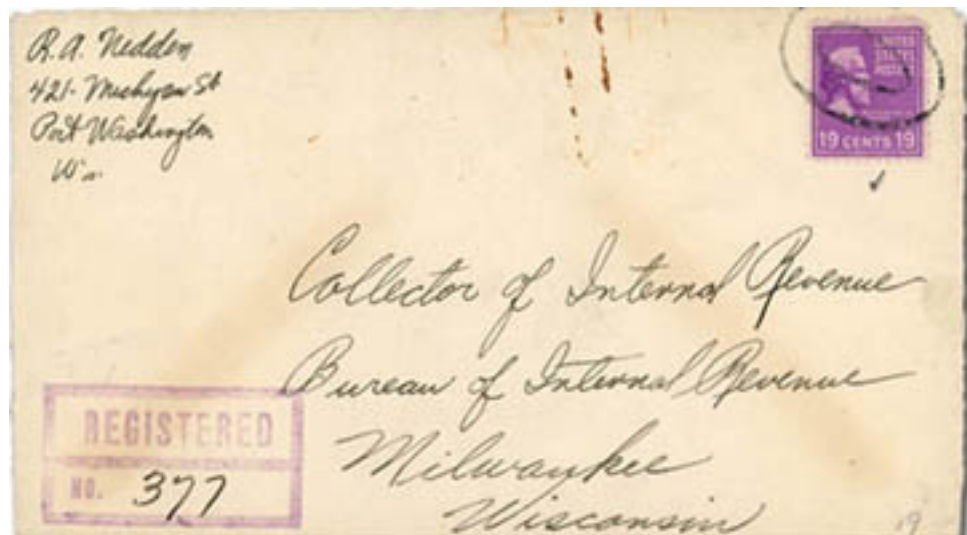 R.A. Nedden
421- Michigan St
Port Washington
Wis.
UNITED
STATES
POSTAGE
19 CENTS 19
Collector of Internal Revenue
Bureau of Internal Revenue
Milwaukee
Wisconsin
REGISTERED
NO. 377
19